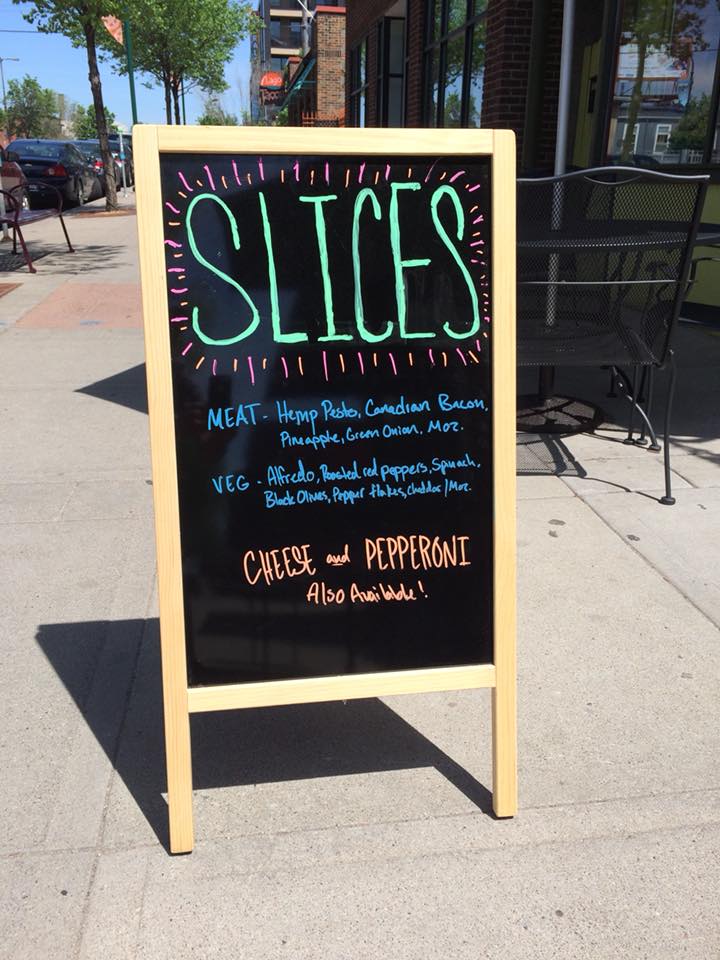 SLICES
MEAT - Hemp Pesto, Canadian Bacon,
Pineapple, Green Onion, Moz.
VEG - Alfredo, Roasted red peppers, Spinach,
Black Olives, Pepper flakes, cheddar/Moz.
CHEESE and PEPPERONI
Also Available!